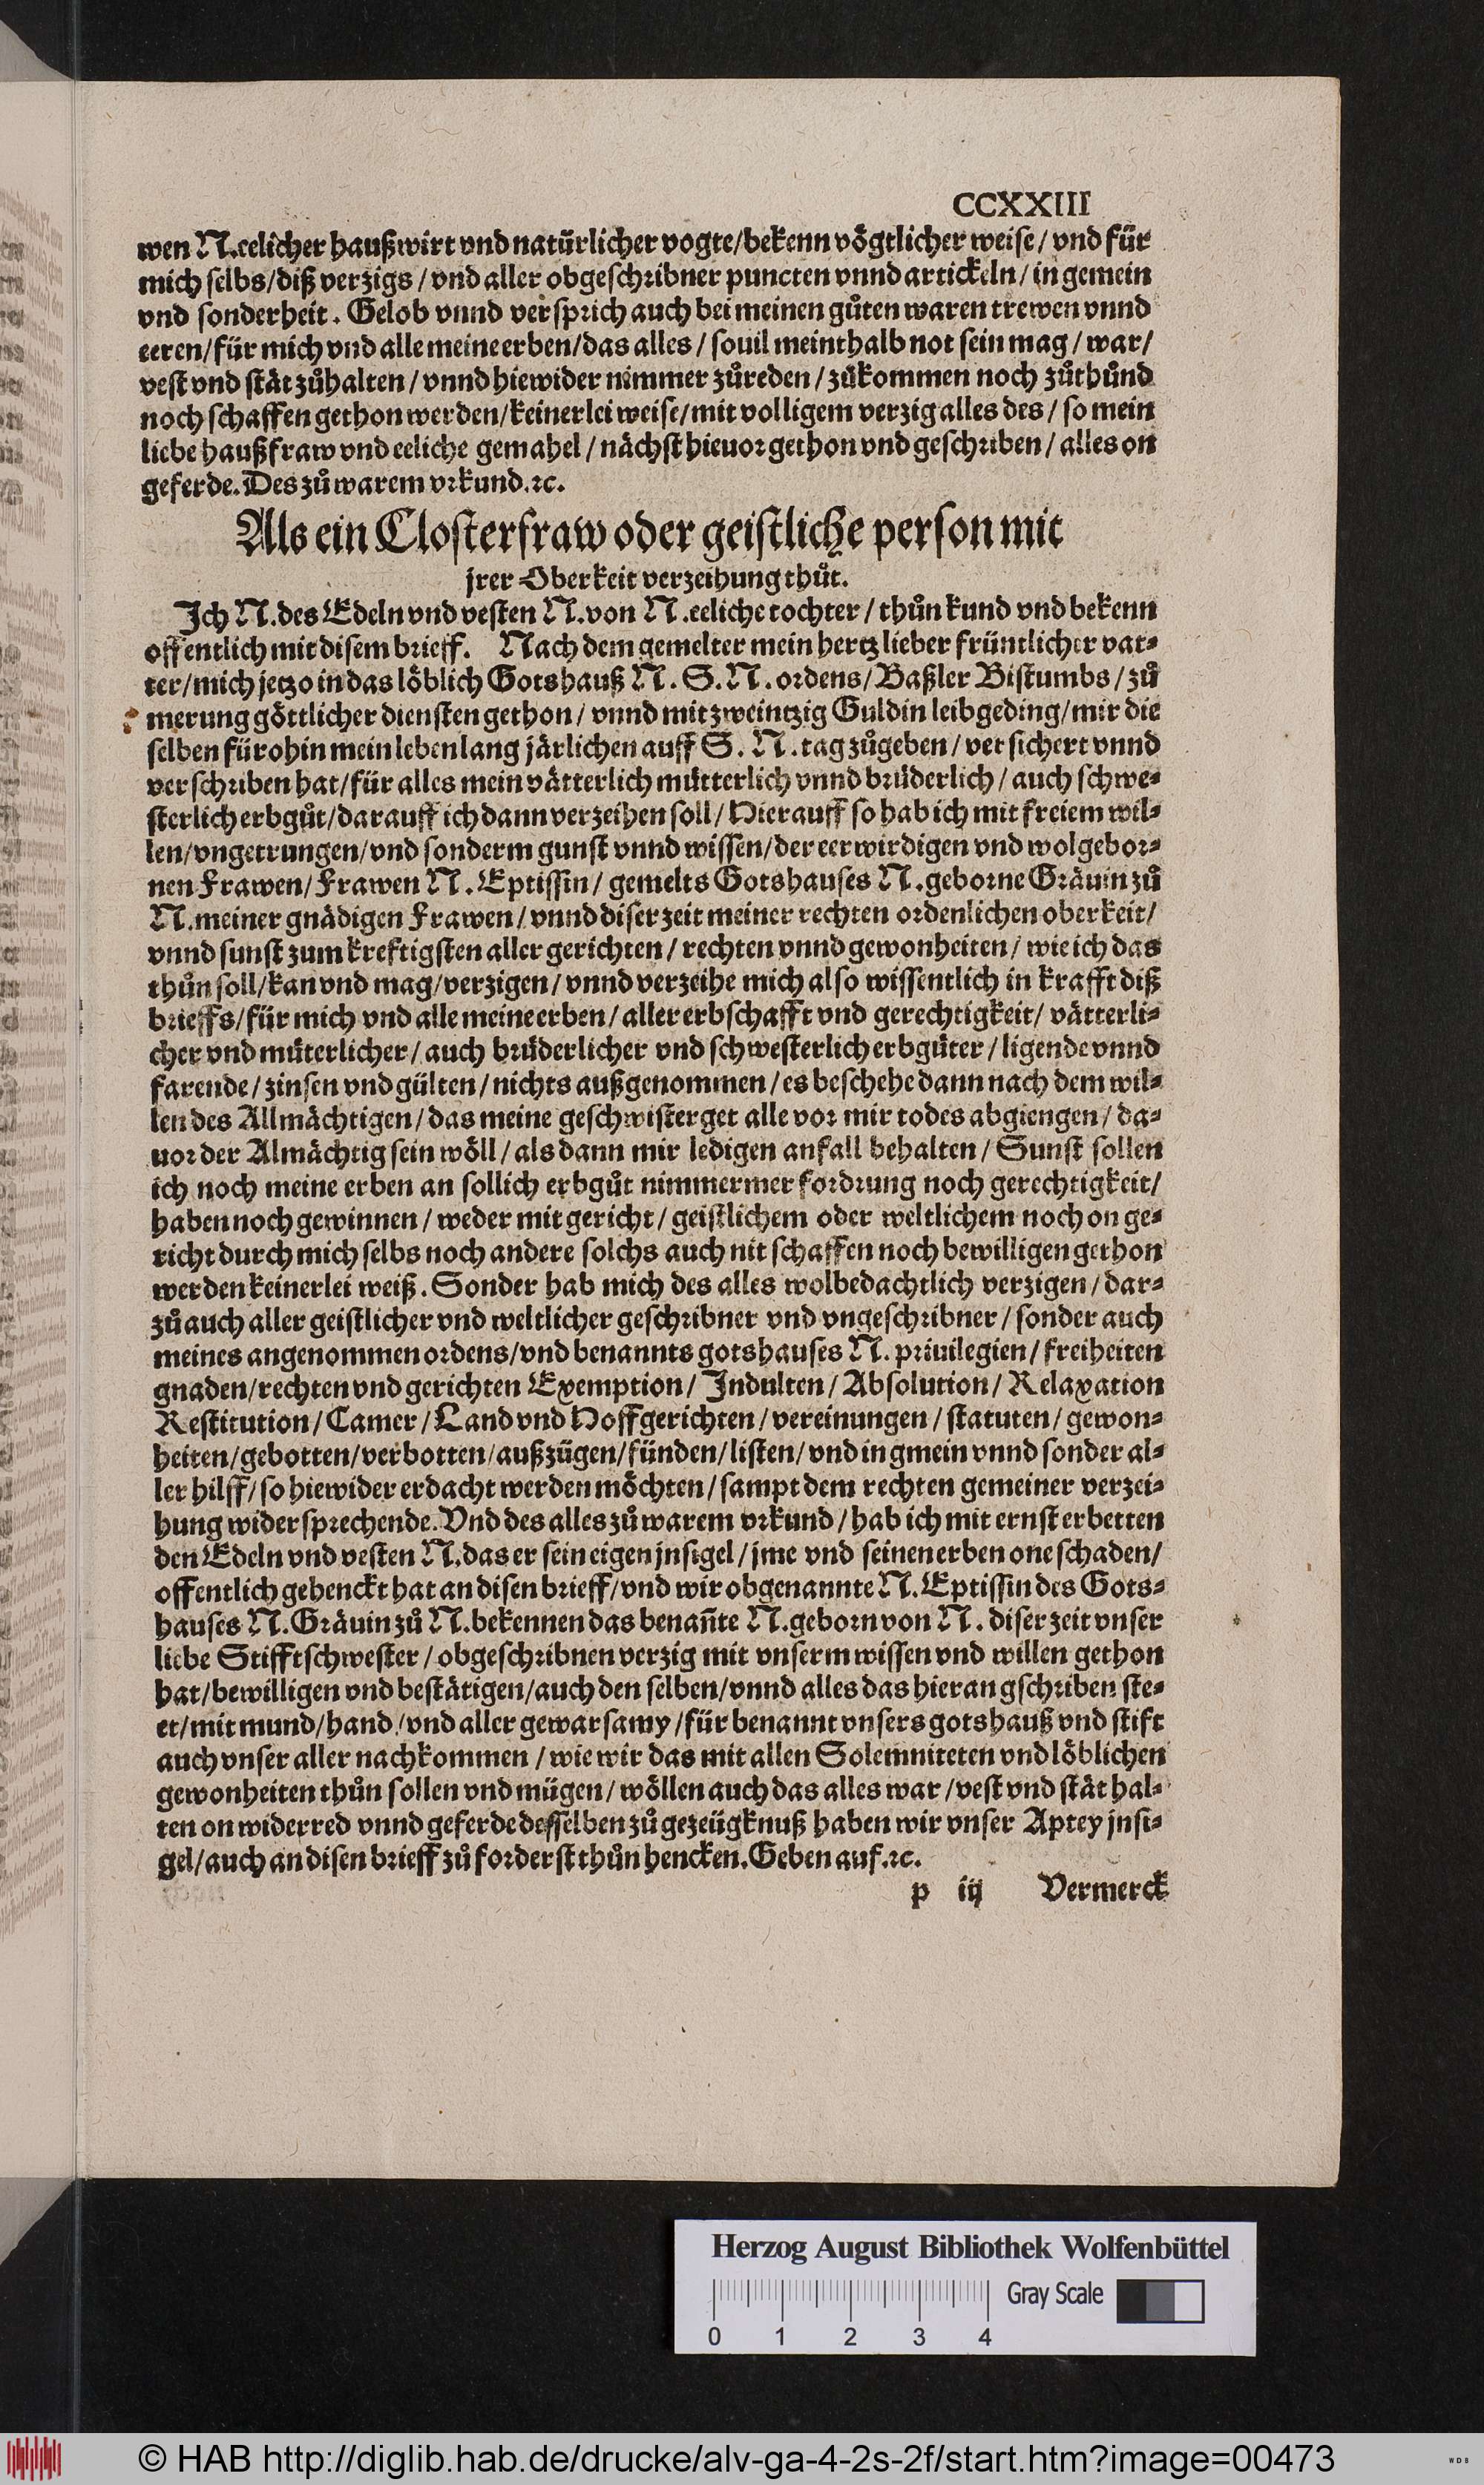 CCXXIII
wen N. eelicher haußwirt vnd natürlicher vogte/bekenn vögtlicher weise/vnd für
mich selbs/diß verzigs/vnd aller obgeschribner puncten vnnd artickeln/in gemein
vnd sonderheit. Gelob vnnd versprich auch bei meinen gůten waren trewen vnnd
eeren/für mich vnd alle meine erben/das alles/souil meinthalb not sein mag/war/
vest vnd stät zůhalten/vnnd hiewider nimmer zůreden/zůkommen noch zůthůnd
noch schaffen gethon werden/keinerlei weise/mit volligem verzig alles des/so mein
liebe haußfraw vnd eeliche gemahel/nächst hieuor gethon vnd geschriben/alles on
geferde. Des zů warem vrkund.ꝛc.
Als ein Closterfraw oder geistliche person mit
jrer Oberkeit verzeihung thůt.
Ich N. des Edeln vnd vesten N. von N. eeliche tochter/thůn kund vnd bekenn
offentlich mit disem brieff. Nach dem gemelter mein hertzlieber früntlicher vat-
ter/mich jetzo in das löblich Gotshauß N. S. N. ordens/Baßler Bistumbs/zů
merung göttlicher diensten gethon/vnnd mit zweintzig Guldin leibgeding/mir die
selben fürohin mein lebenlang järlichen auff S. N. tag zůgeben/versichert vnnd
verschriben hat/für alles mein vätterlich mütterlich vnnd brüderlich/auch schwe-
sterlich erbgůt/darauff ich dann verzeihen soll/Hierauff so hab ich mit freiem wil-
len/vngetrungen/vnd sonderm gunst vnnd wissen/der eerwirdigen vnd wolgebor-
nen Frawen/Frawen N. Eptissin/gemelts Gotshauses N. geborne Gräuin zů
N. meiner gnädigen Frawen/vnnd diser zeit meiner rechten ordenlichen oberkeit/
vnnd sunst zum kreftigsten aller gerichten/rechten vnnd gewonheiten/wie ich das
thůn soll/kan vnd mag/verzigen/vnnd verzeihe mich also wissentlich in krafft diß
brieffs/für mich vnd alle meine erben/aller erbschafft vnd gerechtigkeit/vätterli-
cher vnd müterlicher/auch brüderlicher vnd schwesterlich erbgüter/ligende vnnd
farende/zinsen vnd gülten/nichts außgenommen/es beschehe dann nach dem wil-
len des Allmächtigen/das meine geschwisterget alle vor mir todes abgiengen/da-
uor der Almächtig sein wöll/als dann mir ledigen anfall behalten/Sunst sollen
ich noch meine erben an sollich erbgůt nimmermer fordrung noch gerechtigkeit/
haben noch gewinnen/weder mit gericht/geistlichem oder weltlichem noch on ge-
richt durch mich selbs noch andere solchs auch nit schaffen noch bewilligen gethon
werden keinerlei weiß. Sonder hab mich des alles wolbedachtlich verzigen/dar-
zů auch aller geistlicher vnd weltlicher geschribner vnd vngeschribner/sonder auch
meines angenommen ordens/vnd benannts gotshauses N. priuilegien/freiheiten
gnaden/rechten vnd gerichten Exemption/Indulten/Absolution/Relaxation
Restitution/Camer/Land vnd Hoffgerichten/vereinungen/statuten/gewon-
heiten/gebotten/verbotten/außzügen/fünden/listen/vnd in gmein vnnd sonder al-
ler hilff/so hiewider erdacht werden möchten/sampt dem rechten gemeiner verzei-
hung widersprechende. Vnd des alles zů warem vrkund/hab ich mit ernst erbetten
den Edeln vnd vesten N. das er sein eigen jnsigel/jme vnd seinen erben one schaden/
offentlich gehenckt hat an disen brieff/vnd wir obgenannte N. Eptissin des Gots-
hauses N. Gräuin zů N. bekennen das benañte N. geborn von N. diser zeit vnser
liebe Stifftschwester/obgeschribnen verzig mit vnserm wissen vnd willen gethon
hat/bewilligen vnd bestätigen/auch den selben/vnnd alles das hieran gschriben ste-
et/mit mund/hand/vnd aller gewarsamy/für benannt vnsers gotshauß vnd stift
auch vnser aller nachkommen/wie wir das mit allen Solemniteten vnd löblichen
gewonheiten thůn sollen vnd mügen/wöllen auch das alles war/vest vnd stät hal-
ten on widerred vnnd geferde desselben zů gezeügknuß haben wir vnser Aptey jnsi-
gel/auch an disen brieff zů forderst thůn hencken. Geben auf.ꝛc.
p iij Vermerck
Herzog August Bibliothek Wolfenbüttel
Gray Scale
0 1 2 3 4
© HAB http://diglib.hab.de/drucke/alv-ga-4-2s-2f/start.htm?image=00473
WDB